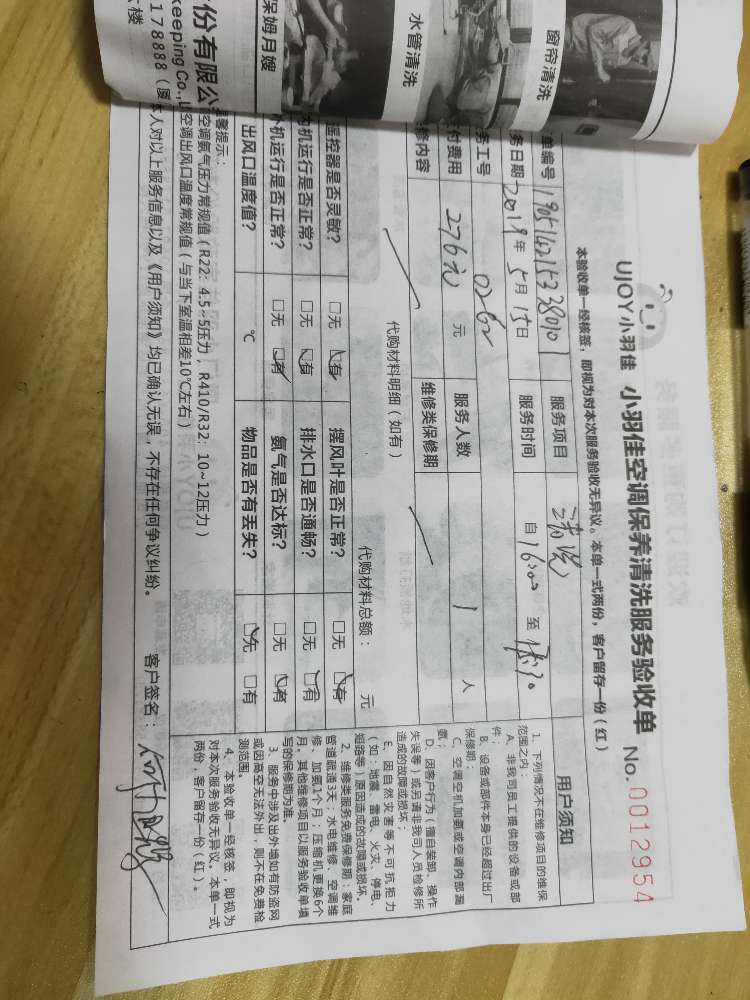 UJOY小羽佳 小羽佳空调保养清洗服务验收单 No.0012954
本验收单一经核签，即视为对本次服务验收无异议。本单一式两份，客户留存一份（红）
单编号 服务项目 清洗
务日期 2019年5月15日 服务时间 自16:00至
务工号 0262
付费用 276元 元 服务人数 1 人
修内容 维修类保修期
代购材料明细（如有） 代购材料总额： 元
遥控器是否灵敏？ □无 □有 摆风叶是否正常？ □无 □有
内机运行是否正常？ □无 □有 排水口是否通畅？ □无 □有
机运行是否正常？ □无 □有 氨气是否达标？ □无 □有
出风口温度值？ ℃ 物品是否有丢失？ □无 □有
馨提示：
空调氨气压力常规值（R22：4.5~5压力，R410/R32：10~12压力）
空调出风口温度常规值（与当下室温相差10℃左右）
本人对以上服务信息以及《用户须知》均已确认无误，不存在任何争议纠纷。 客户签名：
用户须知
1、下列情况不在维修项目的维保
范围之内：
A、非我司员工提供的设备或部
件；
B、设备或部件本身已经超过出厂
保修期；
C、空调空机加氨或空调内部漏
氨；
D、因客户行为（擅自装卸、操作
失误等）或另请非我司人员检修所
造成的故障或损坏；
E、因自然灾害等不可抗拒力
（如：地震、雷电、火灾、停电、
短路等）原因造成的故障或损坏。
2、维修类服务免费保修期：家庭
管道疏通3天；水电维修、空调维
修、加氨1个月；压缩机更换6个
月。其他维修项目以服务验收单填
写的保修期为准。
3、服务中涉及出外墙如有防盗网
或因高空无法外出，则不在免费检
测范围。
4、本验收单一经核签，即视为
对本次服务验收无异议，本单一式
两份，客户留存一份（红）。
窗帘清洗
水管清洗
保姆月嫂
份有限公
keeping Co.,L
178888（厦
楼